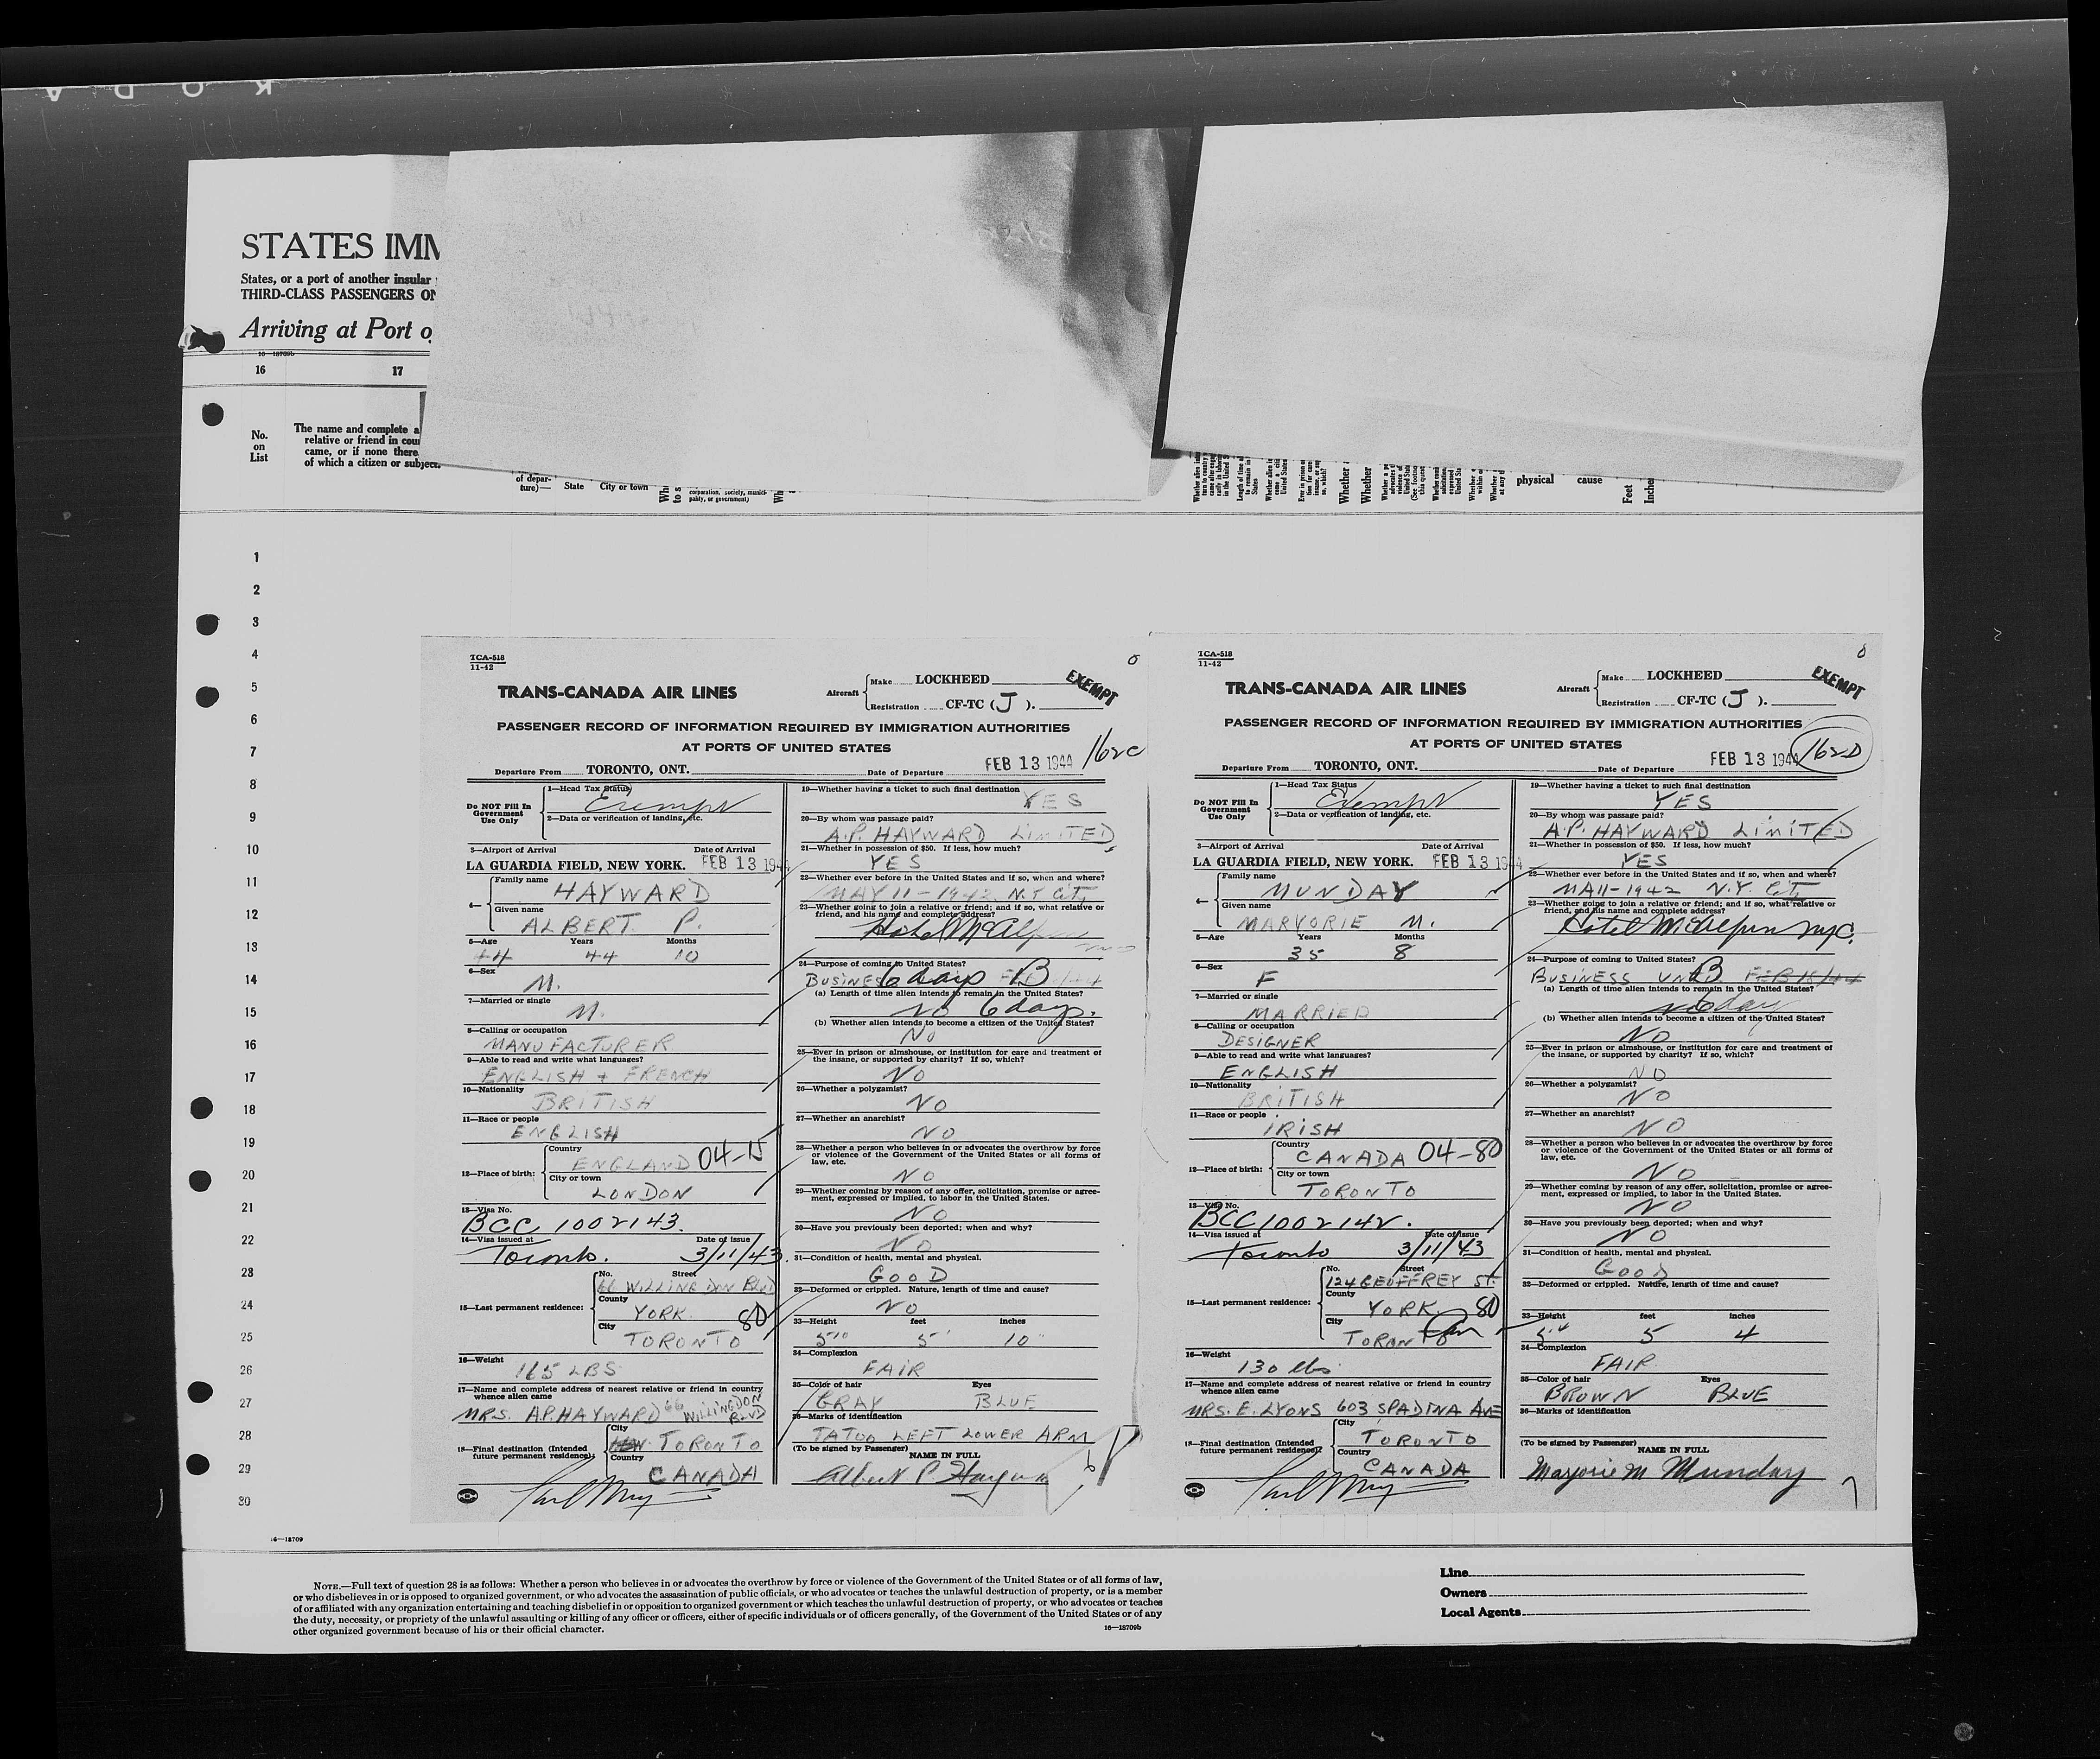 K O D A
STATES IMM
States, or a port of another insular
THIRD-CLASS PASSENGERS ON
Arriving at Port o
16—18709b
16 17
No. on List
The name and complete a
relative or friend in coun
came, or if none there
of which a citizen or subject
of depar-
ture)— State City or town
corporation, society, munici-
pality, or government)
physical cause
Feet
Inches
1
2
3
4
5
6
7
8
9
10
11
12
13
14
15
16
17
18
19
20
21
22
23
24
25
26
27
28
29
30
TCA-518
11-42
TRANS-CANADA AIR LINES
Aircraft Make LOCKHEED
Registration CF-TC ( J ).
EXEMPT
PASSENGER RECORD OF INFORMATION REQUIRED BY IMMIGRATION AUTHORITIES
AT PORTS OF UNITED STATES
162C
Departure From TORONTO, ONT. Date of Departure FEB 13 1944
Do NOT Fill In Government Use Only
1—Head Tax Status
Exempt
2—Data or verification of landing, etc.
3—Airport of Arrival Date of Arrival
LA GUARDIA FIELD, NEW YORK. FEB 13 194
4— Family name
HAYWARD
Given name
ALBERT P.
5—Age Years Months
44 44 10
6—Sex
M.
7—Married or single
M.
8—Calling or occupation
MANUFACTURER
9—Able to read and write what languages?
ENGLISH + FRENCH
10—Nationality
BRITISH
11—Race or people
ENGLISH
12—Place of birth: Country
ENGLAND 04-15
City or town
LONDON
13—Visa No.
BCC 1002143.
14—Visa issued at Date of issue
Toronto. 3/11/43.
15—Last permanent residence: No. Street
66 WILLINGDON BLVD
County
YORK 80
City
TORONTO
16—Weight
165 LBS
17—Name and complete address of nearest relative or friend in country
whence alien came
MRS. A.P. HAYWARD 66 WILLINGDON BLVD
18—Final destination (Intended future permanent residence): City
TORONTO
Country
CANADA
19—Whether having a ticket to such final destination
YES
20—By whom was passage paid?
A.P. HAYWARD LIMITED
21—Whether in possession of $50. If less, how much?
YES
22—Whether ever before in the United States and if so, when and where?
MAY 11-1942 N.Y. CITY
23—Whether going to join a relative or friend; and if so, what relative or
friend, and his name and complete address?
Hotel McAlpin
24—Purpose of coming to United States?
BUSINESS 6 days B
(a) Length of time alien intends to remain in the United States?
NO 6 days.
(b) Whether alien intends to become a citizen of the United States?
NO
25—Ever in prison or almshouse, or institution for care and treatment of
the insane, or supported by charity? If so, which?
NO
26—Whether a polygamist?
NO
27—Whether an anarchist?
NO
28—Whether a person who believes in or advocates the overthrow by force
or violence of the Government of the United States or all forms of
law, etc.
NO
29—Whether coming by reason of any offer, solicitation, promise or agree-
ment, expressed or implied, to labor in the United States.
NO
30—Have you previously been deported; when and why?
NO
31—Condition of health, mental and physical.
GOOD
32—Deformed or crippled. Nature, length of time and cause?
NO
33—Height feet inches
5'10 5' 10"
34—Complexion
FAIR
35—Color of hair Eyes
GRAY BLUE
36—Marks of identification
TATOO LEFT LOWER ARM
(To be signed by Passenger)
NAME IN FULL
Albert P. Hayward
TCA-518
11-42
TRANS-CANADA AIR LINES
Aircraft Make LOCKHEED
Registration CF-TC ( J ).
EXEMPT
PASSENGER RECORD OF INFORMATION REQUIRED BY IMMIGRATION AUTHORITIES
AT PORTS OF UNITED STATES
162D
Departure From TORONTO, ONT. Date of Departure FEB 13 1944
Do NOT Fill In Government Use Only
1—Head Tax Status
Exempt
2—Data or verification of landing, etc.
3—Airport of Arrival Date of Arrival
LA GUARDIA FIELD, NEW YORK. FEB 13 1944
4— Family name
MUNDAY
Given name
MARVORIE M.
5—Age Years Months
35 8
6—Sex
F
7—Married or single
MARRIED
8—Calling or occupation
DESIGNER
9—Able to read and write what languages?
ENGLISH
10—Nationality
BRITISH
11—Race or people
IRISH
12—Place of birth: Country
CANADA 04-80
City or town
TORONTO
13—Visa No.
BCC 1002142.
14—Visa issued at Date of issue
Toronto 3/11/43
15—Last permanent residence: No. Street
124 GEOFFREY ST.
County
YORK 80
City
TORONTO
16—Weight
130 lbs
17—Name and complete address of nearest relative or friend in country
whence alien came
MRS. E. LYONS 603 SPADINA AVE
18—Final destination (Intended future permanent residence)? City
TORONTO
Country
CANADA
19—Whether having a ticket to such final destination
YES
20—By whom was passage paid?
A.P. HAYWARD LIMITED
21—Whether in possession of $50. If less, how much?
YES
22—Whether ever before in the United States and if so, when and where?
MA11-1942 N.Y. CIT
23—Whether going to join a relative or friend; and if so, what relative or
friend, and his name and complete address?
Hotel McAlpin nyc.
24—Purpose of coming to United States?
BUSINESS UNTIL B FEB 18/44
(a) Length of time alien intends to remain in the United States?
6 days
(b) Whether alien intends to become a citizen of the United States?
NO
25—Ever in prison or almshouse, or institution for care and treatment of
the insane, or supported by charity? If so, which?
NO
26—Whether a polygamist?
NO
27—Whether an anarchist?
NO
28—Whether a person who believes in or advocates the overthrow by force
or violence of the Government of the United States or all forms of
law, etc.
NO
29—Whether coming by reason of any offer, solicitation, promise or agree-
ment, expressed or implied, to labor in the United States.
NO
30—Have you previously been deported; when and why?
NO
31—Condition of health, mental and physical.
GOOD
32—Deformed or crippled. Nature, length of time and cause?
33—Height feet inches
5'4 5 4
34—Complexion
FAIR
35—Color of hair Eyes
BROWN BLUE
36—Marks of identification
(To be signed by Passenger)
NAME IN FULL
Marjorie M Munday
16—18709
NOTE.—Full text of question 28 is as follows: Whether a person who believes in or advocates the overthrow by force or violence of the Government of the United States or of all forms of law,
or who disbelieves in or is opposed to organized government, or who advocates the assassination of public officials, or who advocates or teaches the unlawful destruction of property, or is a member
of or affiliated with any organization entertaining and teaching disbelief in or opposition to organized government or which teaches the unlawful destruction of property, or who advocates or teaches
the duty, necessity, or propriety of the unlawful assaulting or killing of any officer or officers, either of specific individuals or of officers generally, of the Government of the United States or of any
other organized government because of his or their official character.
16—18709b
Line
Owners
Local Agents